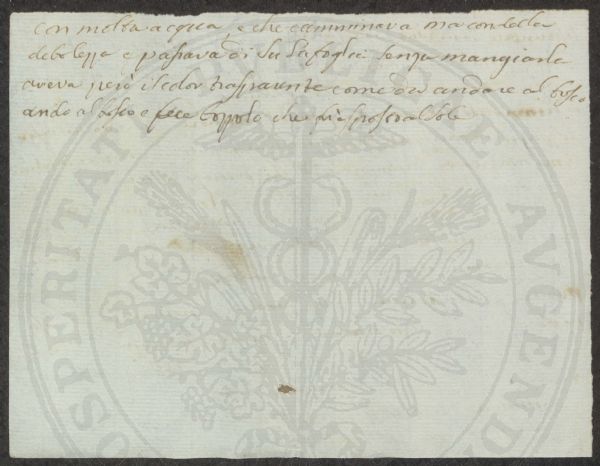 con molta acqua, e che camminava ma con della
debolezza e passava di su la foglia senza mangiarla
aveva però il color trasparente come di andare al bosco
andò al bosco e fece bozzolo che al sole
PROSPERITATI PUBLICAE AUGENDAE